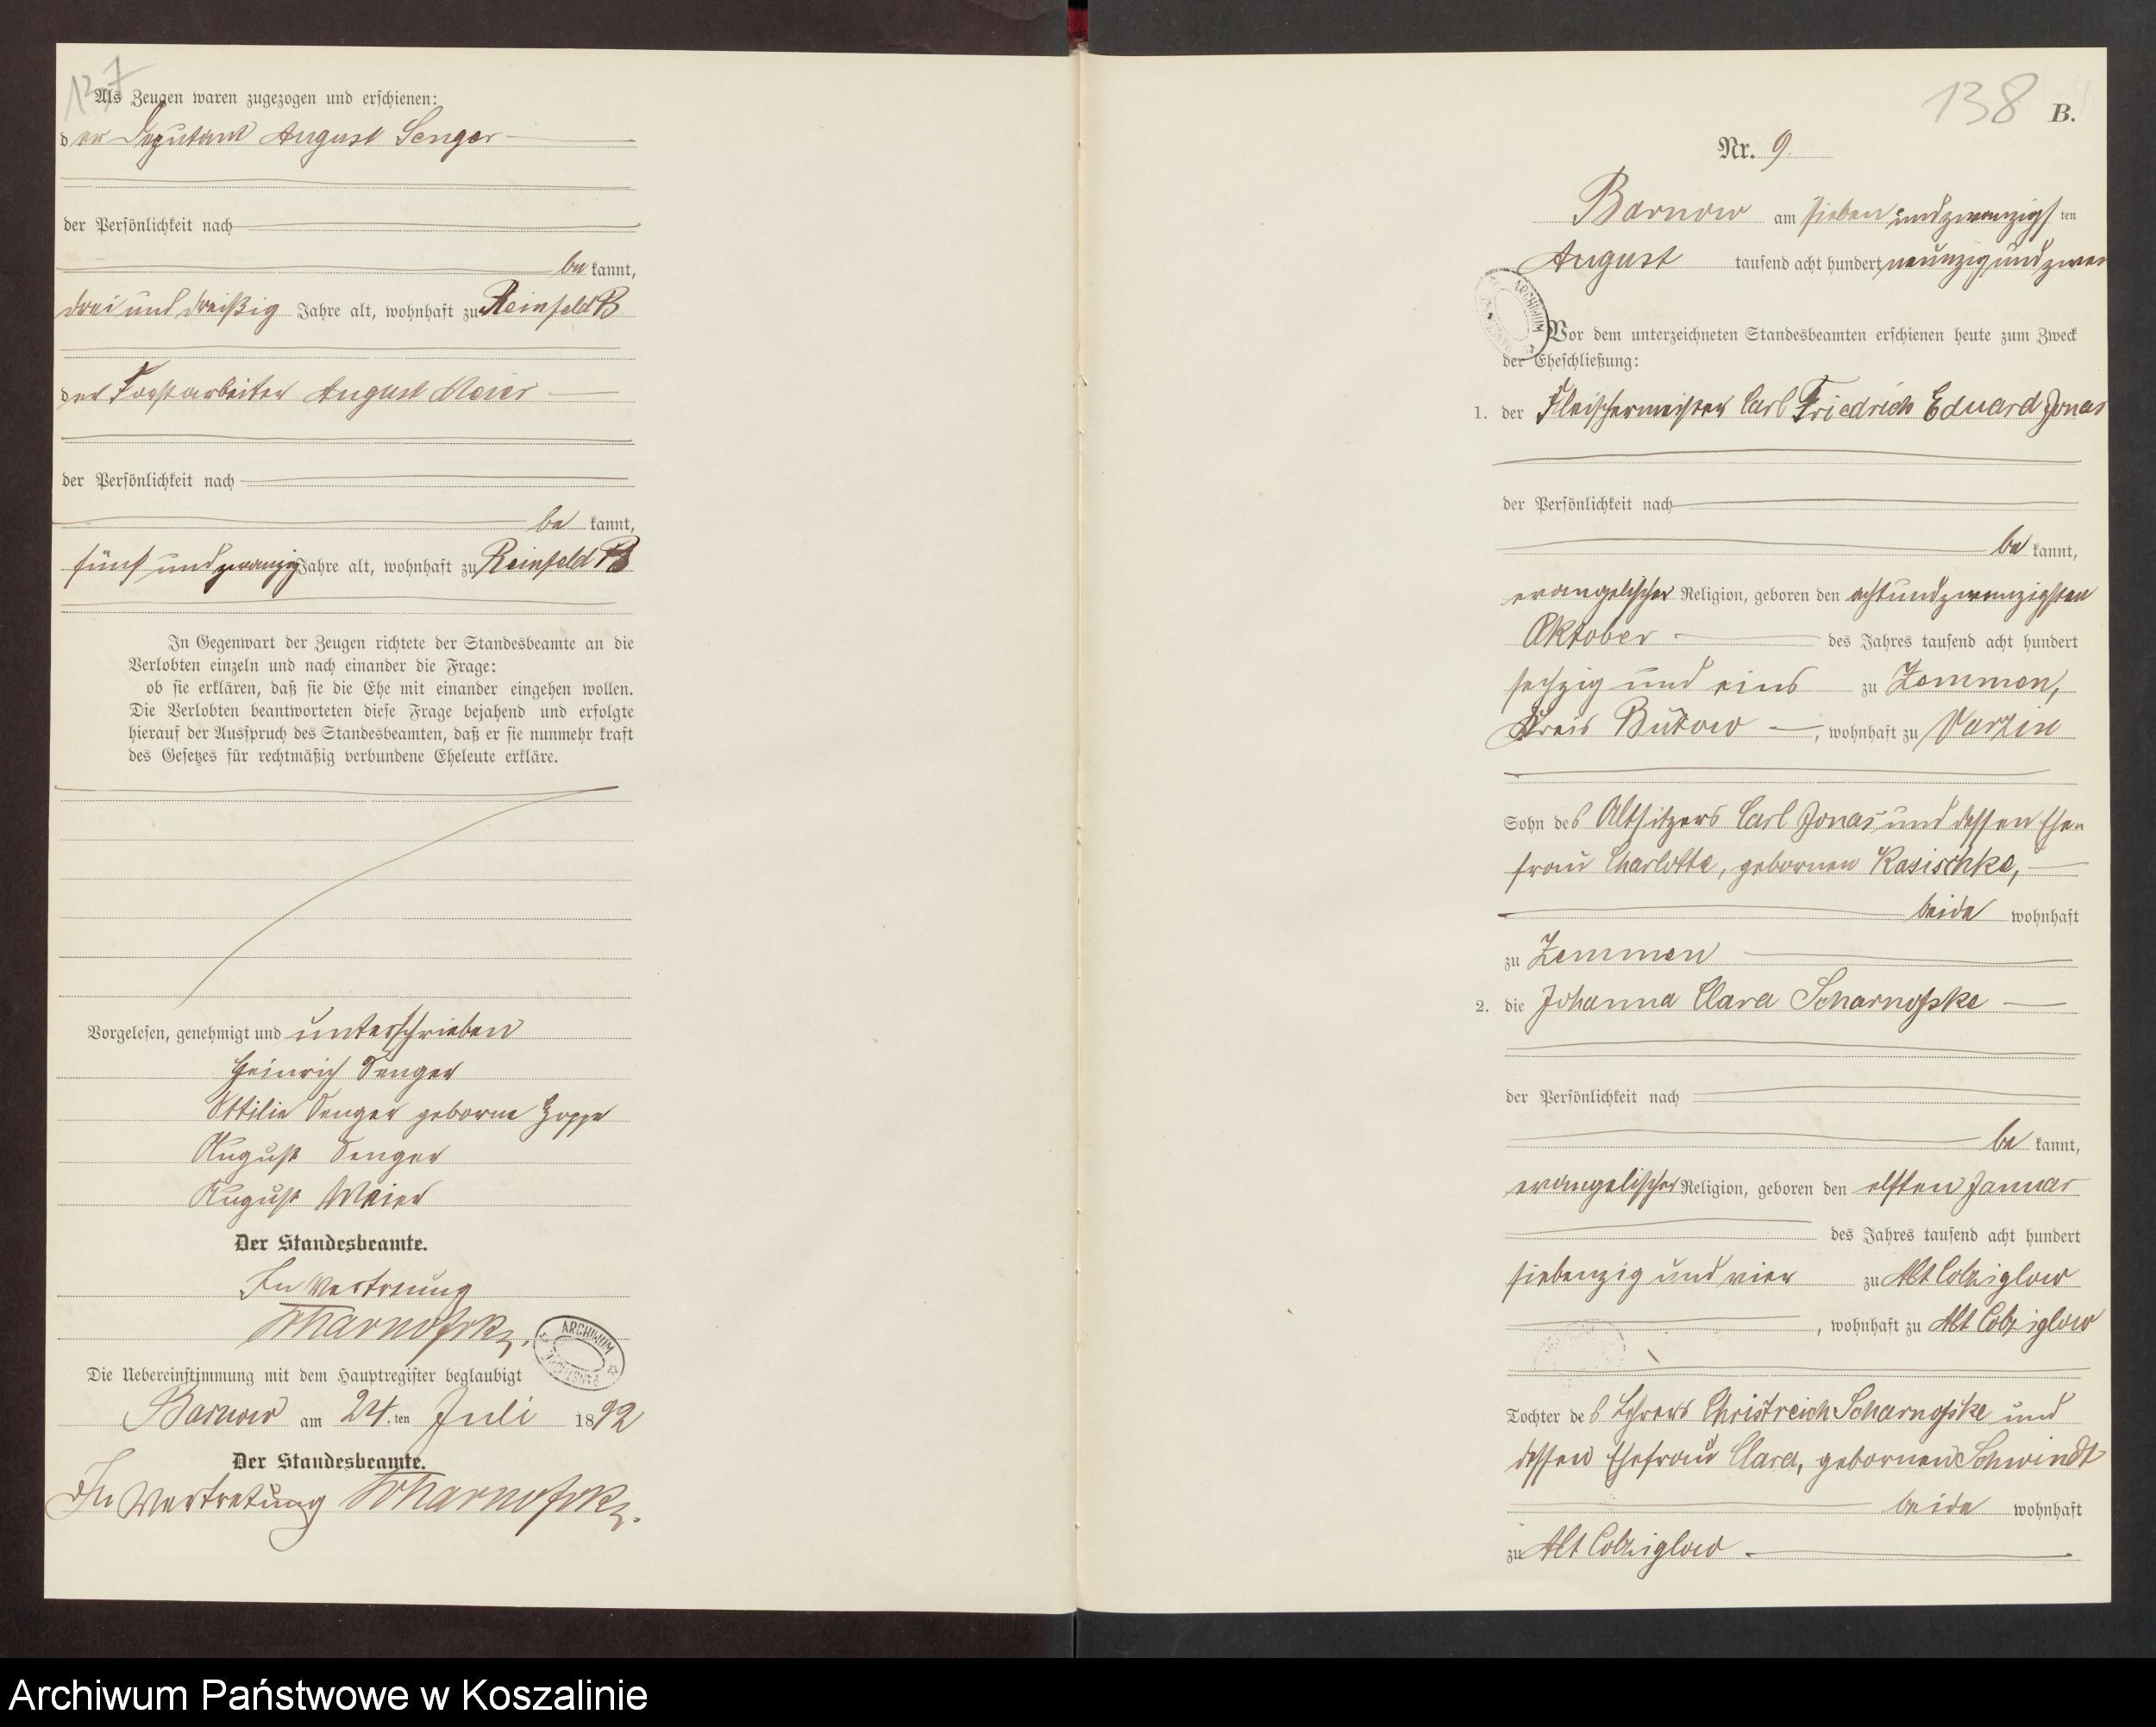 137
Als Zeugen waren zugezogen und erschienen:
der Deputant August Senger
der Persönlichkeit nach
be kannt,
drei und dreißig Jahre alt, wohnhaft zu Reinfeld B
der Forstarbeiter August Meier
der Persönlichkeit nach
be kannt,
fünf und zwanzig Jahre alt, wohnhaft zu Reinfeld B
In Gegenwart der Zeugen richtete der Standesbeamte an die
Verlobten einzeln und nach einander die Frage:
ob sie erklären, daß sie die Ehe mit einander eingehen wollen.
Die Verlobten beantworteten diese Frage bejahend und erfolgte
hierauf der Ausspruch des Standesbeamten, daß er sie nunmehr kraft
des Gesetzes für rechtmäßig verbundene Eheleute erkläre.
Vorgelesen, genehmigt und unterschrieben
Heinrich Senger
Ottilie Senger geborne Hoppe
August Senger
August Meier
Der Standesbeamte.
In Vertretung
Scharnofske.
ARCHIWUM
Die Uebereinstimmung mit dem Hauptregister beglaubigt
Barnow am 24.ten Juli 1892
Der Standesbeamte.
In Vertretung Scharnofske.
138
B.
Nr. 9.
Barnow am sieben und zwanzigsten
August tausend acht hundert neunzig und zwei
ARCHIWUM
Vor dem unterzeichneten Standesbeamten erschienen heute zum Zweck
der Eheschließung:
1. der Fleischermeister Carl Friedrich Eduard Jonas
der Persönlichkeit nach
be kannt,
evangelischer Religion, geboren den acht und zwanzigsten
Oktober des Jahres tausend acht hundert
sechzig und eins zu Zemmen,
Kreis Bütow, wohnhaft zu Varzin
Sohn des Altsitzers Carl Jonas und dessen Ehe-
frau Charlotte, gebornen Kasischke,
beide wohnhaft
zu Zemmen
2. die Johanna Clara Scharnofske
der Persönlichkeit nach
be kannt,
evangelischer Religion, geboren den elften Januar
des Jahres tausend acht hundert
siebenzig und vier zu Alt Colziglow
, wohnhaft zu Alt Colziglow
Tochter des Lehrers Christreich Scharnofske und
dessen Ehefrau Clara, gebornen Schwindt
beide wohnhaft
zu Alt Colziglow
Archiwum Państwowe w Koszalinie